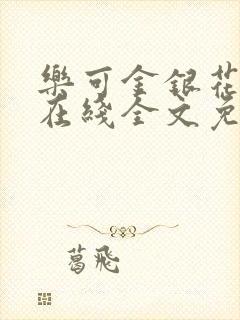 樂可金銀花
在綫全文免
葛飛